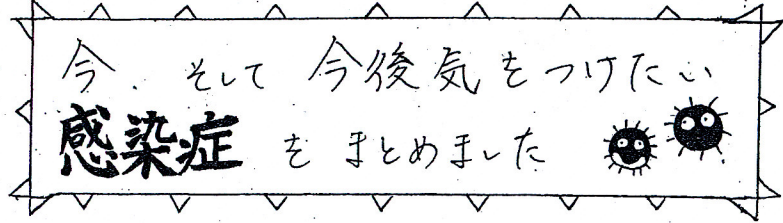 今、そして今後気をつけたい
感染症をまとめました